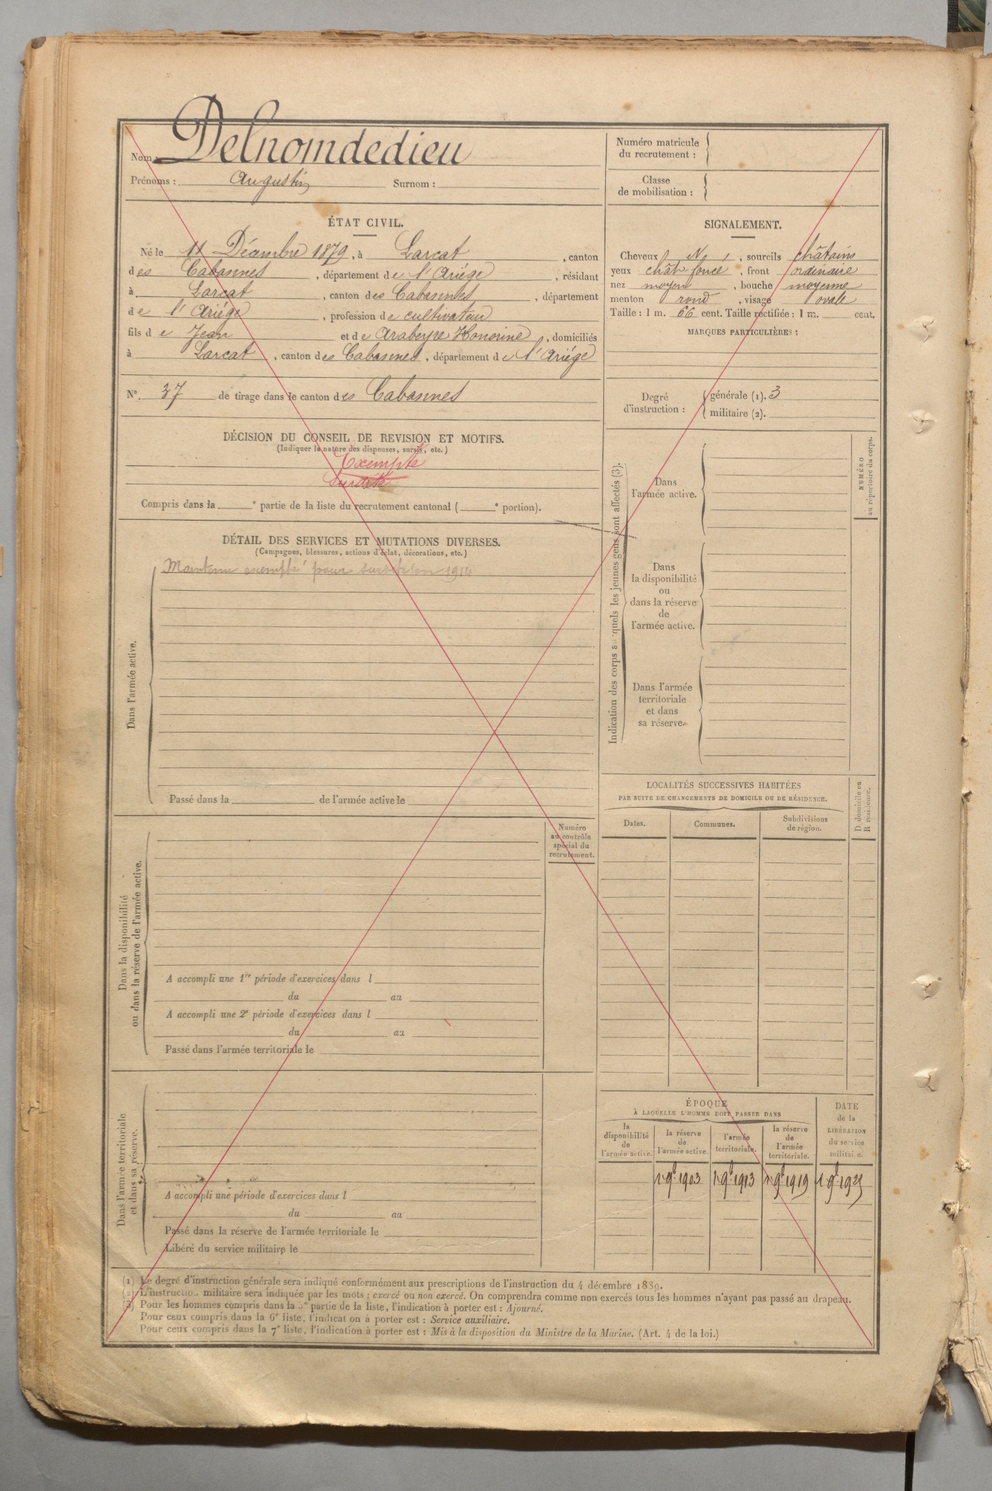 Nom Delnomdedieu
Prénoms : Augustin Surnom :
Numéro matricule
du recrutement :
Classe
de mobilisation :
ÉTAT CIVIL.
Né le 11 Décembre 1879, à Larcat, canton
des Cabannes, département de l'Ariége, résidant
à Larcat, canton des Cabannes, département
de l'Ariége, profession de cultivateur
fils de Jean et de Araberyre Honorine, domiciliés
à Larcat, canton des Cabannes, département de l'Ariége
N° 37 de tirage dans le canton des Cabannes
SIGNALEMENT.
Cheveux N, sourcils châtains
yeux chât foncé, front ordinaire
nez moyen, bouche moyenne
menton rond, visage ovale
Taille : 1 m. 66 cent. Taille rectifiée : 1 m. cent.
MARQUES PARTICULIÈRES :
Degré
d'instruction :
générale (1). 3
militaire (2).
DÉCISION DU CONSEIL DE REVISION ET MOTIFS.
(Indiquer la nature des dispenses, sursis, etc.)
Exempté
Surdité
Compris dans la e partie de la liste du recrutement cantonal ( e portion).
DÉTAIL DES SERVICES ET MUTATIONS DIVERSES.
(Campagnes, blessures, actions d'éclat, décorations, etc.)
Maintenu exempté pour surdité en 1914
Dans l'armée active.
Passé dans la de l'armée active le
Indication des corps auxquels les jeunes gens sont affectés (3).
Dans
l'armée active.
Dans
la disponibilité
ou
dans la réserve
de
l'armée active.
Dans l'armée
territoriale
et dans
sa réserve.
NUMÉRO
au répertoire du corps.
LOCALITÉS SUCCESSIVES HABITÉES
PAR SUITE DE CHANGEMENTS DE DOMICILE OU DE RÉSIDENCE.
Dates. Communes. Subdivisions
de région.
D. domicile ou
R. résidence.
Numéro
au contrôle
spécial du
recrutement.
Dans la disponibilité
ou dans la réserve de l'armée active.
A accompli une 1re période d'exercices dans l
du au
A accompli une 2e période d'exercices dans l
du au
Passé dans l'armée territoriale le
Dans l'armée territoriale
et dans sa réserve.
A accompli une période d'exercices dans l
du au
Passé dans la réserve de l'armée territoriale le
Libéré du service militaire le
ÉPOQUE
À LAQUELLE L'HOMME DOIT PASSER DANS
la
disponibilité
de
l'armée active.
la réserve
de
l'armée active.
l'armée
territoriale.
la réserve
de
l'armée
territoriale.
DATE
de la
LIBÉRATION
du service
militaire.
1 9bre 1903 1 9bre 1913 1 9bre 1919 1 9bre 1925
(1) Le degré d'instruction générale sera indiqué conformément aux prescriptions de l'instruction du 4 décembre 1889.
(2) L'instruction militaire sera indiquée par les mots : exercé ou non exercé. On comprendra comme non exercés tous les hommes n'ayant pas passé au drapeau.
(3) Pour les hommes compris dans la 5e partie de la liste, l'indication à porter est : Ajourné.
Pour ceux compris dans la 6e liste, l'indication à porter est : Service auxiliaire.
Pour ceux compris dans la 7e liste, l'indication à porter est : Mis à la disposition du Ministre de la Marine. (Art. 4 de la loi.)